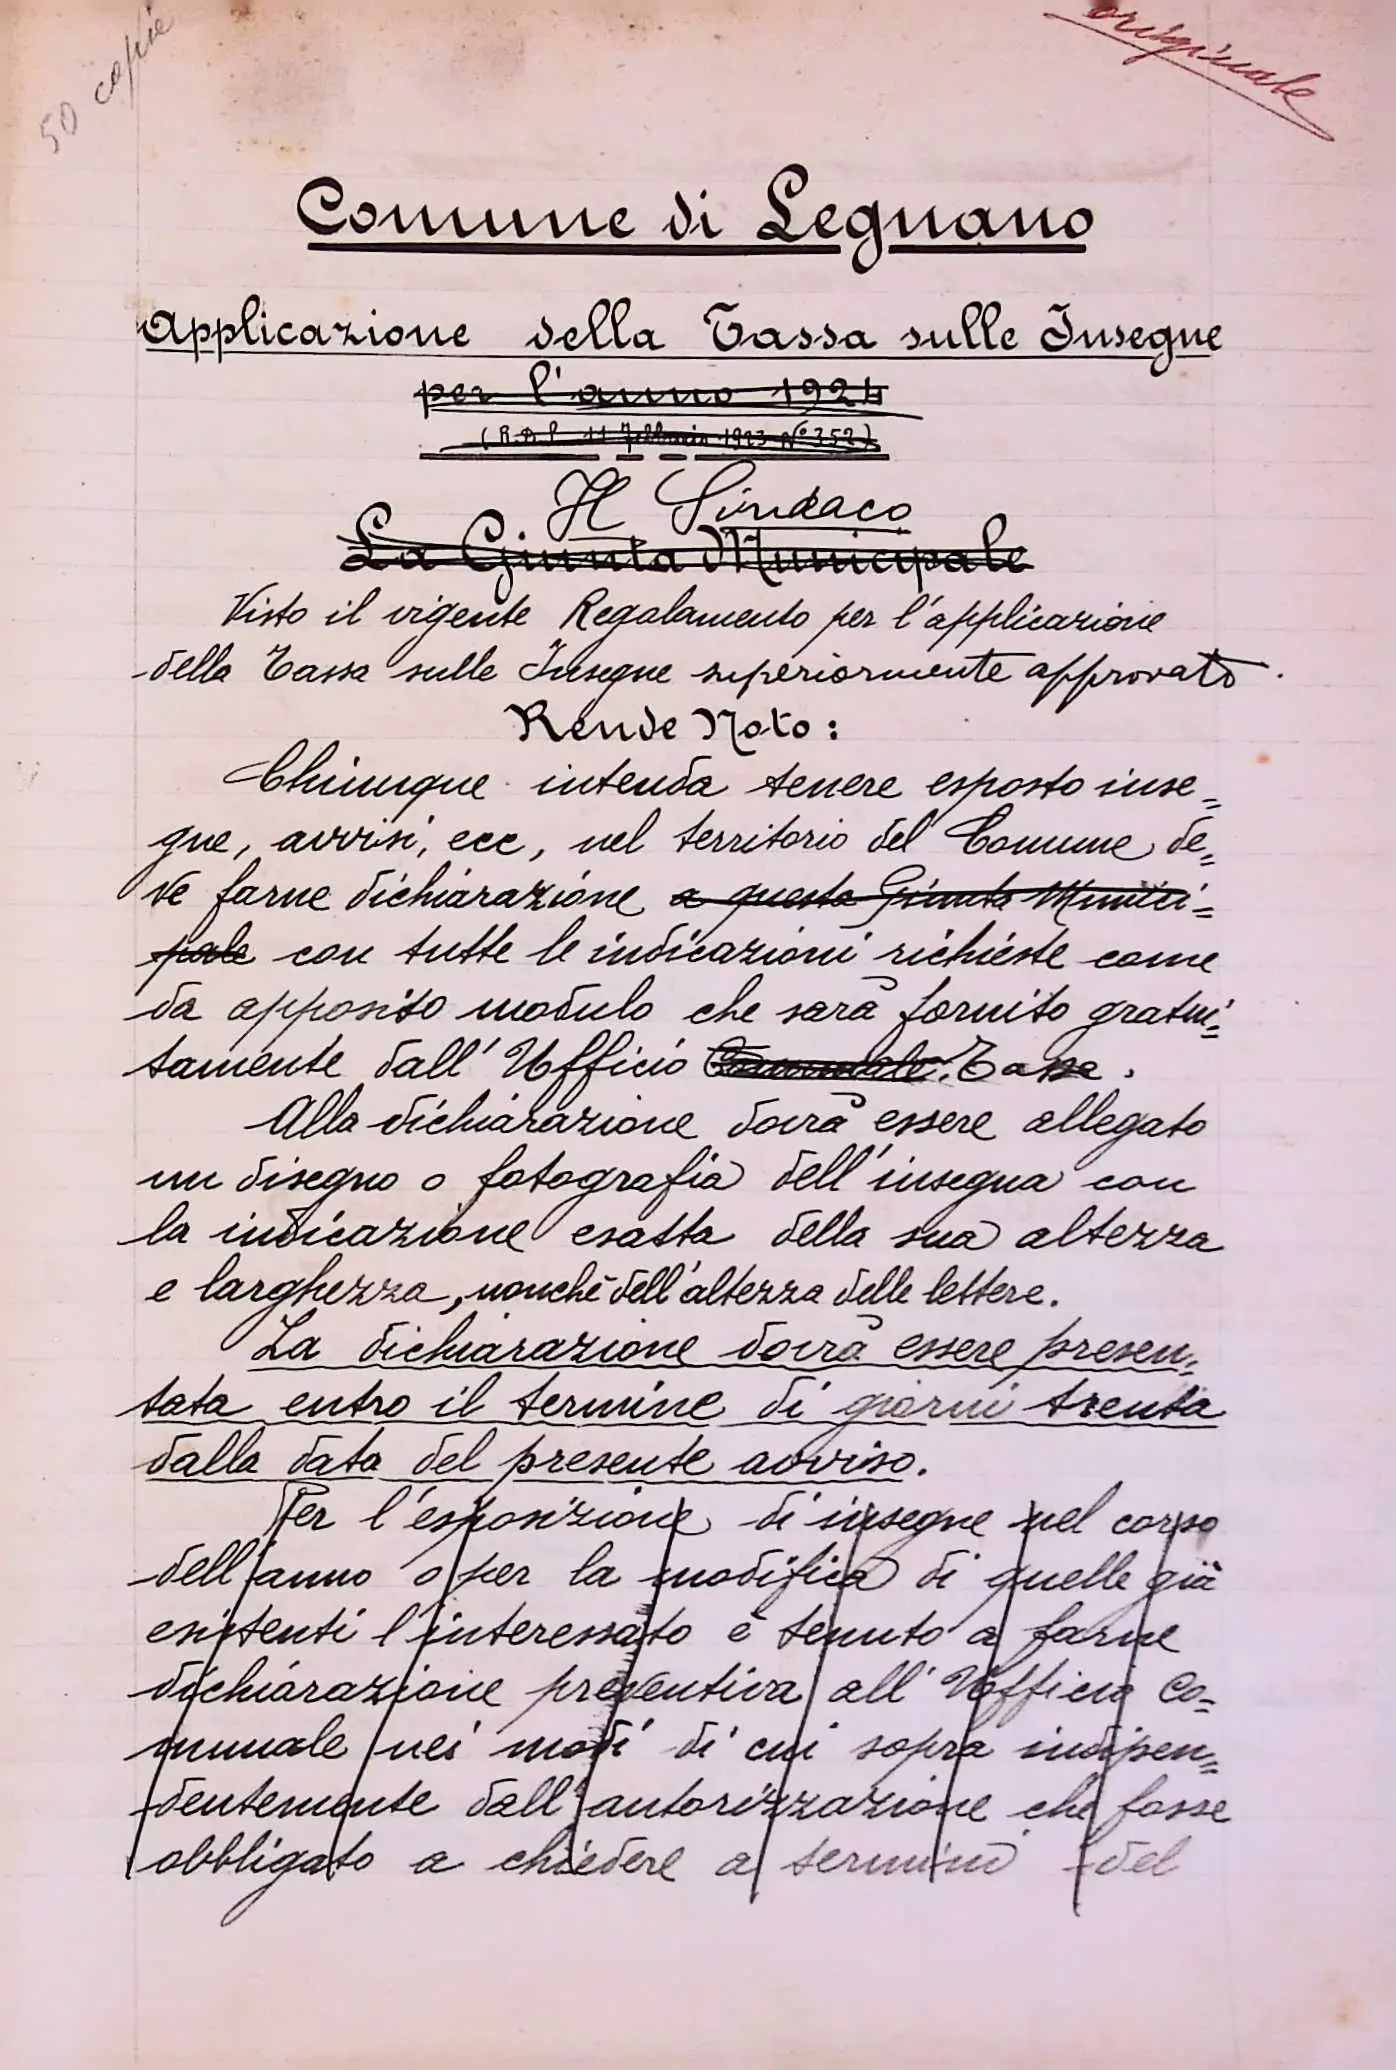 50 copie
originale
Comune di Legnano
Applicazione della Tassa sulle Insegne
per l'anno 1924
(R.D.L. 11 Febbraio 1923 N° 352)
Il Sindaco
La Giunta Municipale
Visto il vigente Regolamento per l'applicazione
della Tassa sulle Insegne superiormente approvato.
Rende Noto:
Chiunque intenda tenere esposto inse=
gne, avvisi, ecc, nel territorio del Comune de=
ve farne dichiarazione a questa Giunta Munici=
pale con tutte le indicazioni richieste come
da apposito modulo che sarà fornito gratui=
tamente dall'Ufficio Comunale. Tasse.
Alla dichiarazione dovrà essere allegato
un disegno o fotografia dell'insegna con
la indicazione esatta della sua altezza
e larghezza, nonchè dell'altezza delle lettere.
La dichiarazione dovrà essere presen=
tata entro il termine di giorni trenta
dalla data del presente avviso.
Per l'esposizione di insegne nel corso
dell'anno o per la modifica di quelle già
esistenti l'interessato è tenuto a farne
dichiarazione preventiva all'Ufficio Co=
munale nei modi di cui sopra indipen=
dentemente dall'autorizzazione che fosse
obbligato a chiedere a termini del